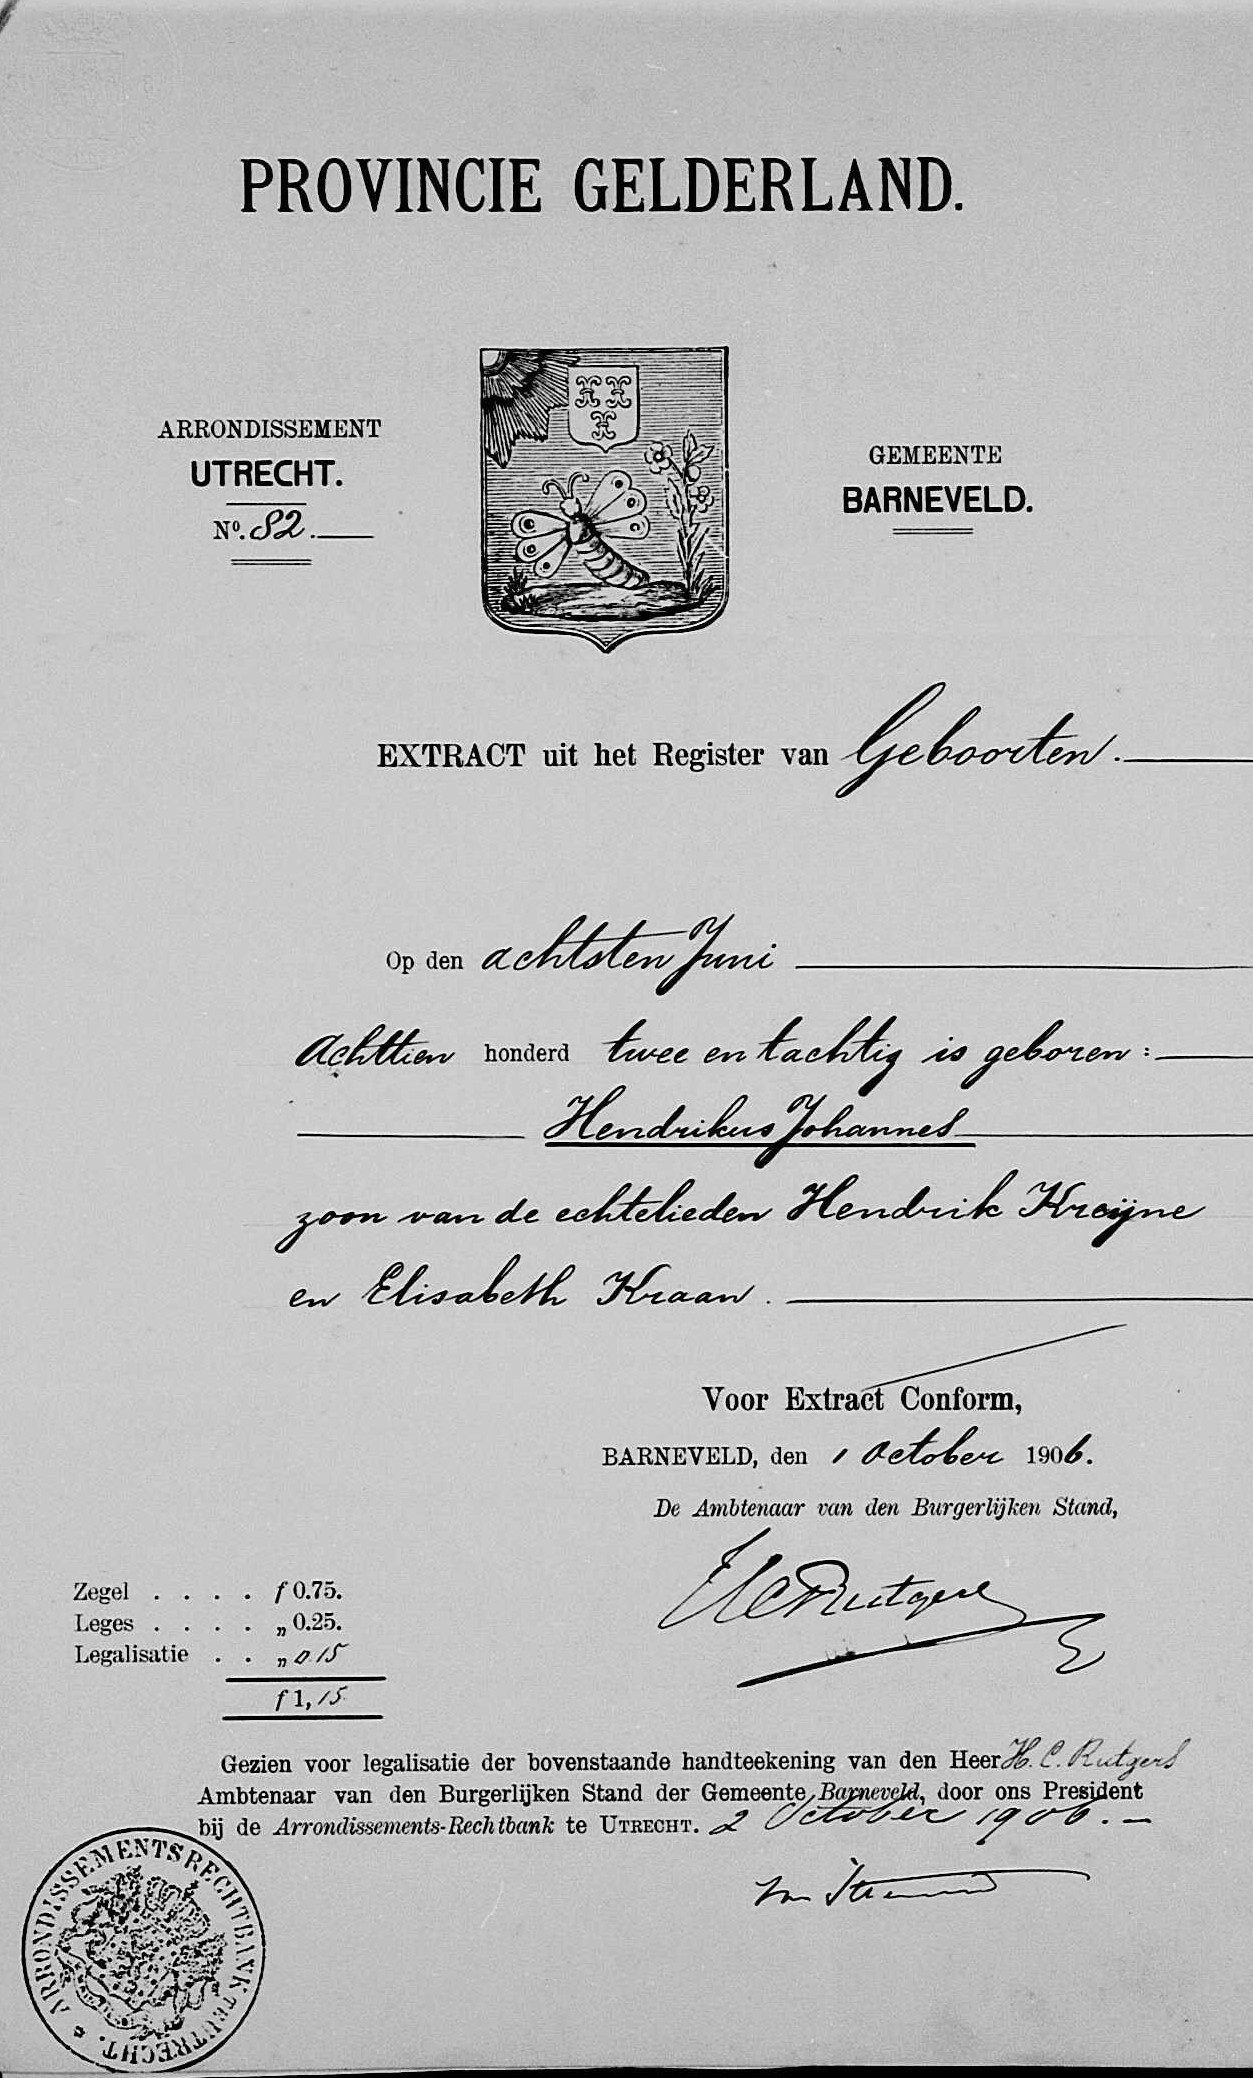 PROVINCIE GELDERLAND.
ARRONDISSEMENT
UTRECHT.
Nº. 82.
GEMEENTE
BARNEVELD.
EXTRACT uit het Register van Geboorten.
Op den achtsten Juni
Achttien honderd twee en tachtig is geboren:
Hendrikus Johannes
zoon van de echtelieden Hendrik Kroijne
en Elisabeth Kraan.
Voor Extract Conform,
BARNEVELD, den 1 October 1906.
De Ambtenaar van den Burgerlijken Stand,
HCRutgers
Zegel . . . . f 0.75.
Leges . . . . „ 0.25.
Legalisatie . . „ 0.15
f 1,15
Gezien voor legalisatie der bovenstaande handteekening van den Heer H. C. Rutgers
Ambtenaar van den Burgerlijken Stand der Gemeente Barneveld, door ons President
bij de Arrondissements-Rechtbank te UTRECHT. 2 October 1906. —
ARRONDISSEMENTSRECHTBANK TE UTRECHT.